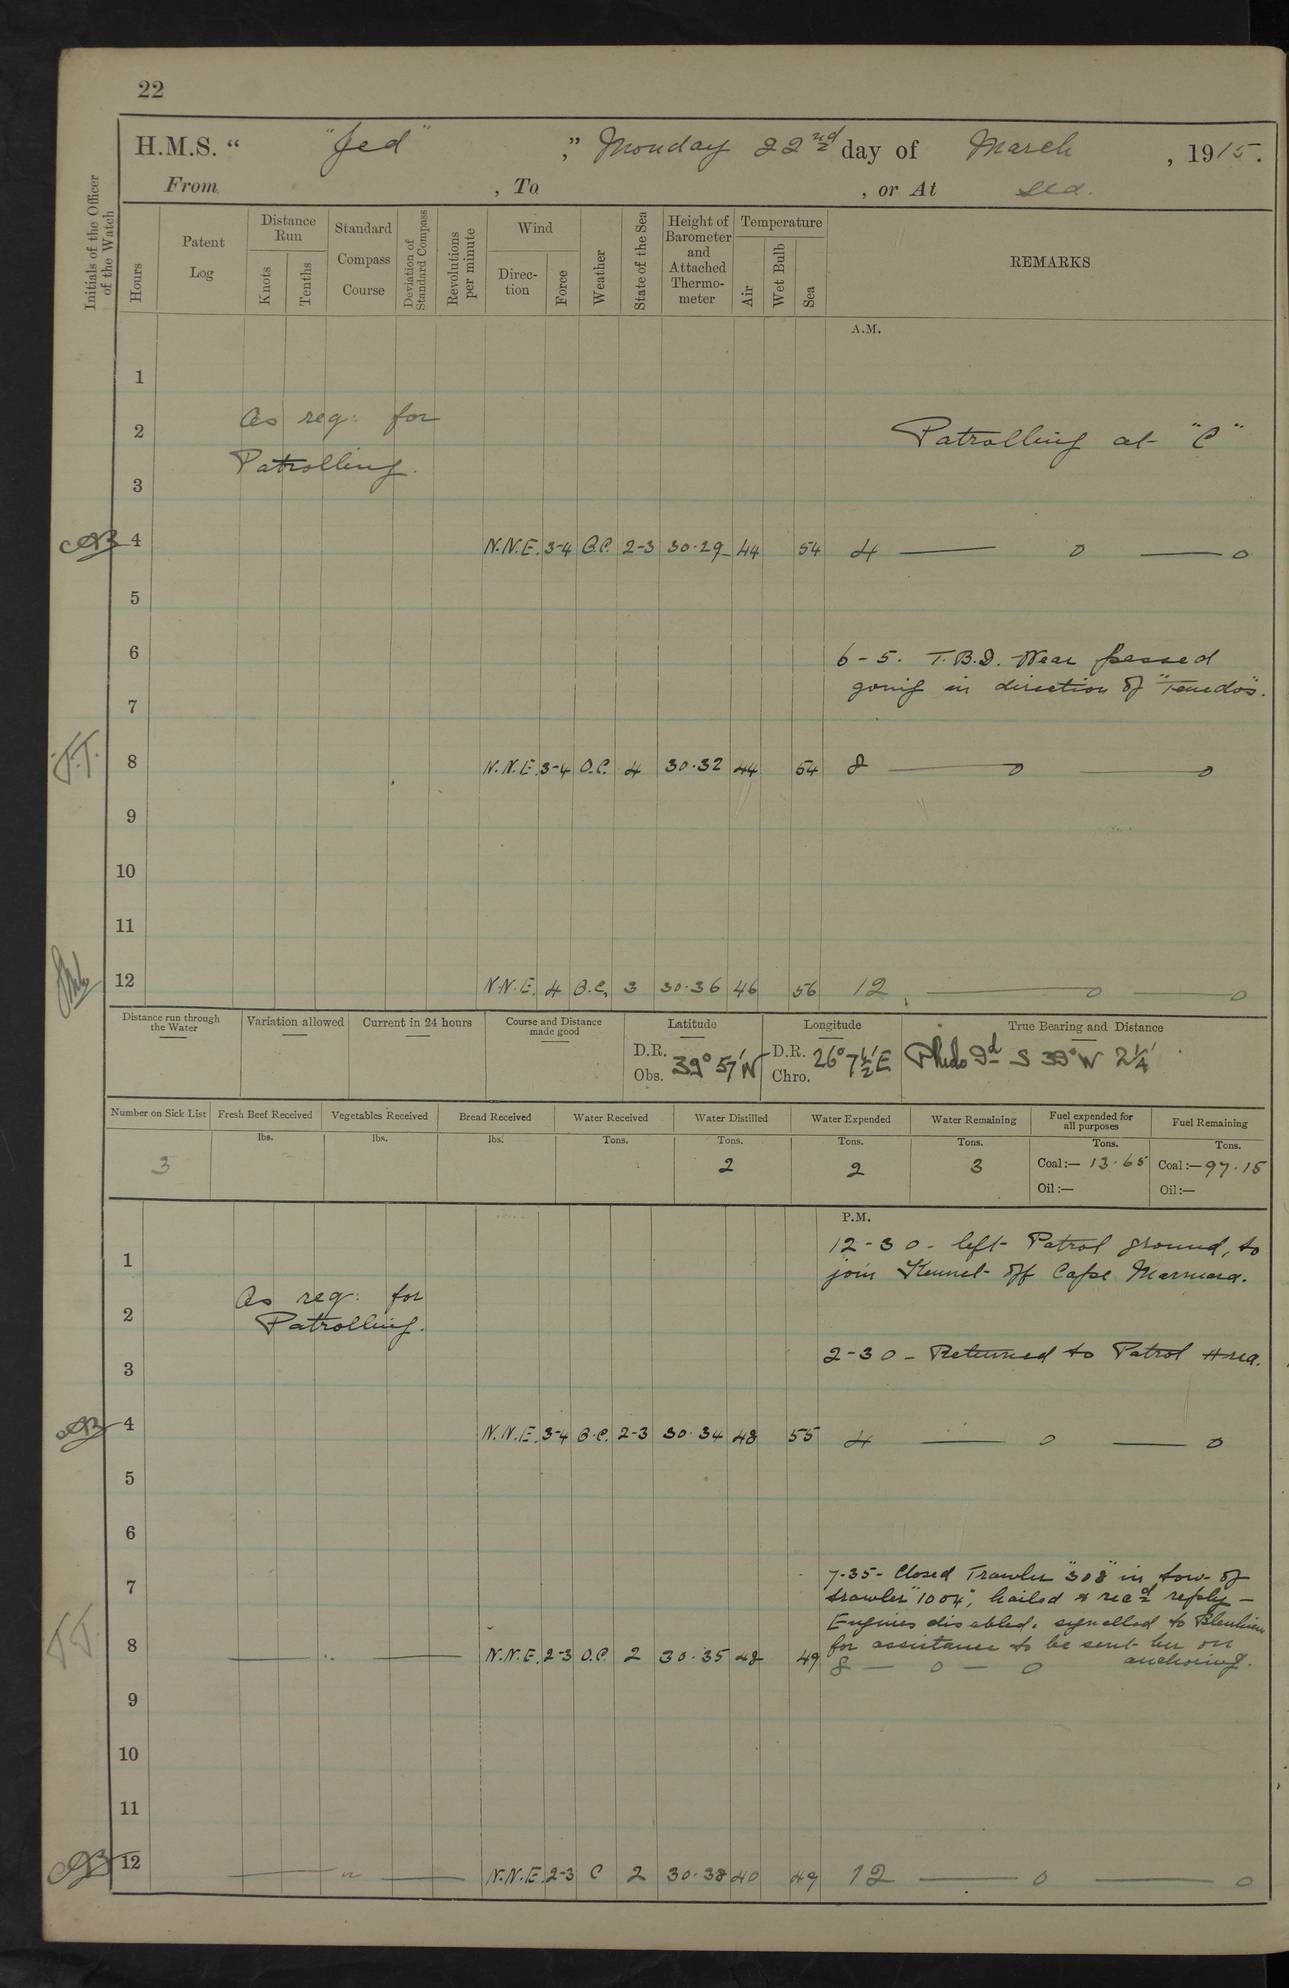 22
H.M.S. " "Jed" ," Monday 22nd day of March , 1915.
From , To , or At Sea.
Initials of the Officer of the Watch
Hours
Patent Log
Distance Run
Knots
Tenths
Standard Compass Course
Deviation of Standard Compass
Revolutions per minute
Wind
Direction
Force
Weather
State of the Sea
Height of Barometer and Attached Thermometer
Temperature
Air
Wet Bulb
Sea
REMARKS
A.M.
1
As req: for
2 Patrolling at "C"
Patrolling.
3
4 N.N.E. 3-4 B.C. 2-3 30.29 44 54 4 — o — o
5
6 6-5. T.B.D. Wear passed
going in direction of "Tenedos".
7
J.T. 8 N.N.E. 3-4 O.C. 4 30.32 44 54 8 — o — o
9
10
11
12 N.N.E. 4 B.C. 3 30.36 46 56 12 — o — o
Distance run through the Water
Variation allowed
Current in 24 hours
Course and Distance made good
Latitude
D.R. Obs. 39° 57' N
Longitude
D.R. Chro. 26° 7½' E
True Bearing and Distance
S 39° W 2¼'
Number on Sick List Fresh Beef Received Vegetables Received Bread Received Water Received Water Distilled Water Expended Water Remaining Fuel expended for all purposes Fuel Remaining
lbs. lbs. lbs. Tons. Tons. Tons. Tons. Tons. Tons.
3 2 2 3 Coal:— 13.65 Coal:— 97.15
Oil:— Oil:—
P.M.
12-30 - left Patrol ground, to
1 join Kennet off Cape Marmara.
As req: for
2 Patrolling.
2-30 - Returned to Patrol Area.
3
4 N.N.E. 3-4 B.C. 2-3 30.34 48 55 4 — o — o
5
6
7-35 - Closed Trawler "308" in tow of
7 trawler "1004", hailed & recd reply -
Engines disabled. signalled to Blenheim
for assistance to be sent her on
anchoring.
J.T. 8 — " — N.N.E. 2-3 O.C. 2 30.35 48 49 8 — o — o
9
10
11
12 — " — N.N.E. 2-3 C 2 30.38 40 49 12 — o — o